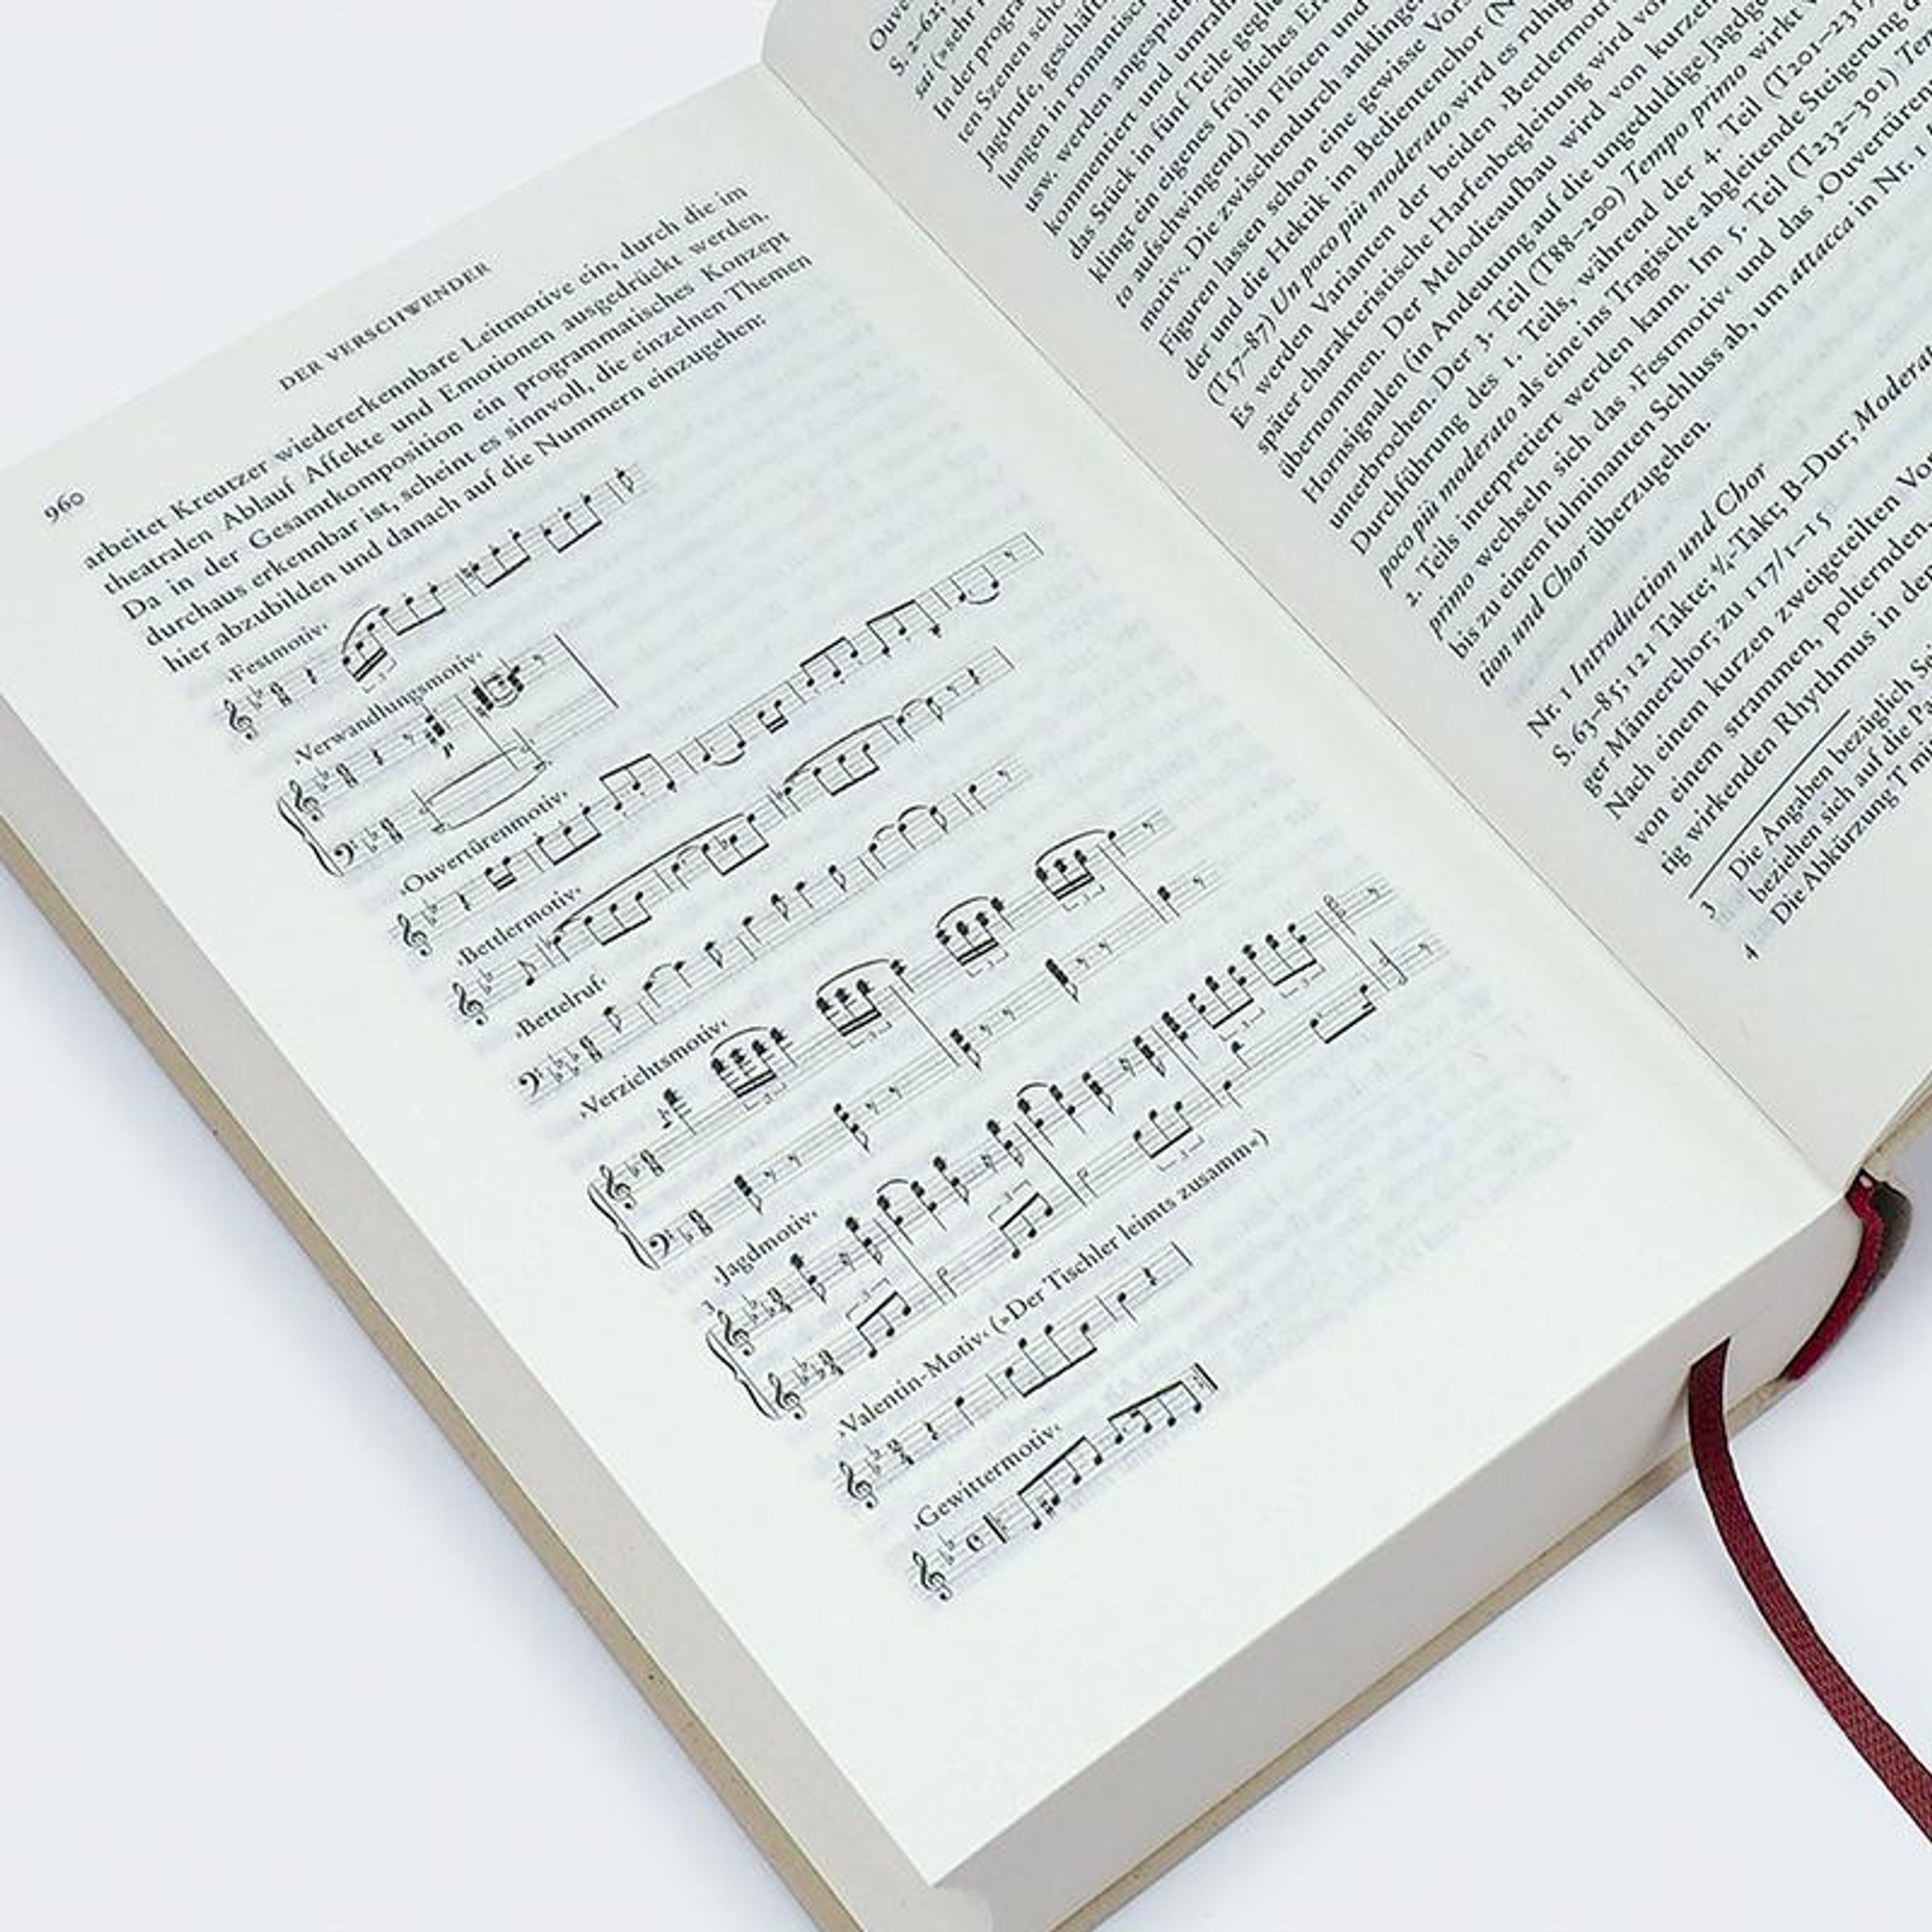 960
DER VERSCHWENDER
arbeitet Kreutzer wiedererkennbare Leitmotive ein, durch die im
theatralen Ablauf Affekte und Emotionen ausgedrückt werden.
Da in der Gesamtkomposition ein programmatisches Konzept
durchaus erkennbar ist, scheint es sinnvoll, die einzelnen Themen
hier abzubilden und danach auf die Nummern einzugehen:
›Festmotiv‹
›Verwandlungsmotiv‹
›Ouvertürenmotiv‹
›Bettlermotiv‹
›Bettelruf‹
›Verzichtsmotiv‹
›Jagdmotiv‹
›Valentin-Motiv‹ (»Der Tischler leimts zusamm«)
›Gewittermotiv‹
Ouve
S. 2–62;
sai (»sehr
In der progra
ten Szenen scho
Jagdrufe, geschäft
lungen in romantisch
usw. werden angespiel
kommentiert und umrah
das Stück in fünf Teile geglie
klingt ein eigenes fröhliches Er
to aufschwingend) in Flöten und
motiv‹. Die zwischendurch anklinge
Figuren lassen schon eine gewisse Vors
der und die Hektik im Bedientenchor (N
(T57–87) Un poco più moderato wird es ruhig
Es werden Varianten der beiden ›Bettlermot
später charakteristische Harfenbegleitung wird vo
übernommen. Der Melodieaufbau wird von kurzen
Hornsignalen (in Andeutung auf die ungeduldige Jagdge
unterbrochen. Der 3. Teil (T88–200) Tempo primo wirkt
Durchführung des 1. Teils, während der 4. Teil (T201–231)
poco più moderato als eine ins Tragische abgleitende Steigerung d
2. Teils interpretiert werden kann. Im 5. Teil (T232–301) Tem
primo wechseln sich das ›Festmotiv‹ und das ›Ouvertüren
bis zu einem fulminanten Schluss ab, um attacca in Nr. 1
tion und Chor überzugehen.
Nr. 1 Introduction und Chor
S. 63–85; 121 Takte; 4/4-Takt; B-Dur; Moderat
ger Männerchor; zu 117/1–15
Nach einem kurzen zweigeteilten Vo
von einem strammen, polternden
tig wirkenden Rhythmus in de
3 Die Angaben bezüglich Sei
beziehen sich auf die Pa
4 Die Abkürzung T mi